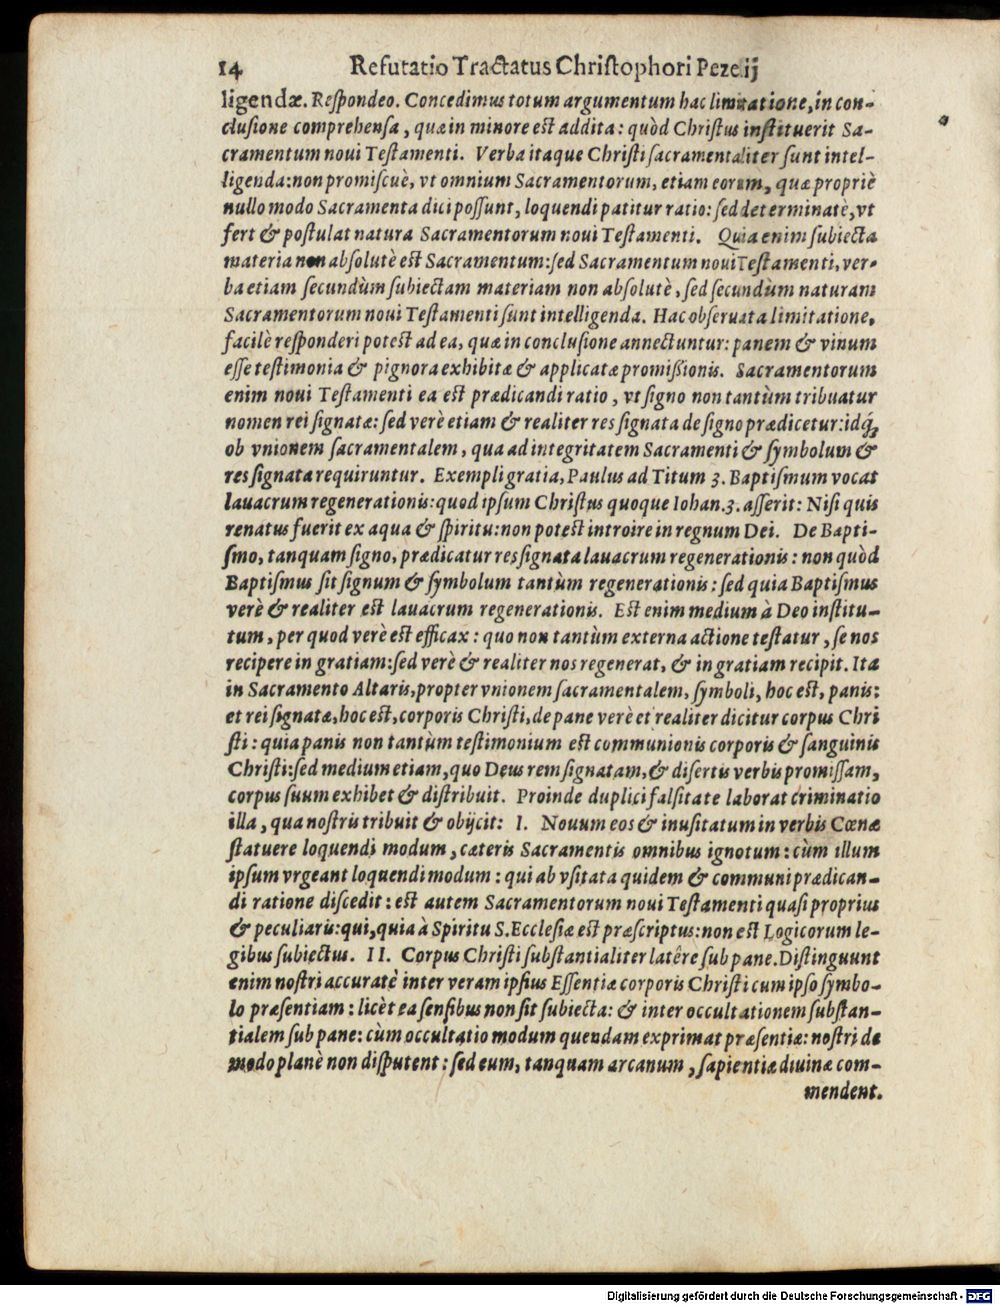 14 Refutatio Tractatus Christophori Pezelij
ligendæ. Respondeo. Concedimus totum argumentum hac limitatione, in con-
clusione comprehensa, quæ in minore est addita: quòd Christus instituerit Sa-
cramentum noui Testamenti. Verba itaque Christi sacramentaliter sunt intel-
ligenda: non promiscuè, vt omnium Sacramentorum, etiam eorum, quæ propriè
nullo modo Sacramenta dici possunt, loquendi patitur ratio: sed determinatè, vt
fert & postulat natura Sacramentorum noui Testamenti. Quia enim subiecta
materia non absolutè est Sacramentum: sed Sacramentum noui Testamenti, ver-
ba etiam secundùm subiectam materiam non absolutè, sed secundùm naturam
Sacramentorum noui Testamenti sunt intelligenda. Hac obseruata limitatione,
facilè responderi potest ad ea, quæ in conclusione annectuntur: panem & vinum
esse testimonia & pignora exhibitæ & applicatæ promißionis. Sacramentorum
enim noui Testamenti ea est prædicandi ratio, vt signo non tantùm tribuatur
nomen rei signatæ: sed verè etiam & realiter res signata de signo prædicetur: idq́;
ob vnionem sacramentalem, qua ad integritatem Sacramenti & symbolum &
res signata requiruntur. Exempli gratia, Paulus ad Titum 3. Baptismum vocat
lauacrum regenerationis: quod ipsum Christus quoque Iohan. 3. asserit: Nisi quis
renatus fuerit ex aqua & spiritu: non potest introire in regnum Dei. De Bapti-
smo, tanquam signo, prædicatur res signata lauacrum regenerationis: non quòd
Baptismus sit signum & symbolum tantùm regenerationis: sed quia Baptismus
verè & realiter est lauacrum regenerationis. Est enim medium à Deo institu-
tum, per quod verè est efficax: quo non tantùm externa actione testatur, se nos
recipere in gratiam: sed verè & realiter nos regenerat, & in gratiam recipit. Ita
in Sacramento Altaris, propter vnionem sacramentalem, symboli, hoc est, panis:
et rei signatæ, hoc est, corporis Christi, de pane verè et realiter dicitur corpus Chri
sti: quia panis non tantùm testimonium est communionis corporis & sanguinis
Christi: sed medium etiam, quo Deus rem signatam, & disertis verbis promissam,
corpus suum exhibet & distribuit. Proinde duplici falsitate laborat criminatio
illa, qua nostris tribuit & obijcit: I. Nouum eos & inusitatum in verbis Cœnæ
statuere loquendi modum, cæteris Sacramentis omnibus ignotum: cùm illum
ipsum vrgeant loquendi modum: qui ab vsitata quidem & communi prædican-
di ratione discedit: est autem Sacramentorum noui Testamenti quasi proprius
& peculiaris: qui, quia à Spiritu S. Ecclesiæ est præscriptus: non est Logicorum le-
gibus subiectus. II. Corpus Christi substantialiter latêre sub pane. Distinguunt
enim nostri accuratè inter veram ipsius Essentiæ corporis Christi cum ipso symbo-
lo præsentiam: licèt ea sensibus non sit subiecta: & inter occultationem substan-
tialem sub pane: cùm occultatio modum quendam exprimat præsentiæ: nostri de
modo planè non disputent: sed eum, tanquam arcanum, sapientiæ diuinæ com-
mendent.
Digitalisierung gefördert durch die Deutsche Forschungsgemeinschaft - DFG